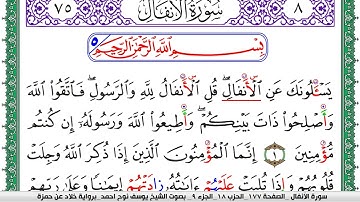 ٧٥ سورة الأنفال ٨
بِسْمِ اللَّهِ الرَّحْمَٰنِ الرَّحِيمِ
يَسْـَٔلُونَكَ عَنِ الْأَنفَالِ ۖ قُلِ الْأَنفَالُ لِلَّهِ وَالرَّسُولِ ۖ فَاتَّقُوا اللَّهَ
وَأَصْلِحُوا ذَاتَ بَيْنِكُمْ ۖ وَأَطِيعُوا اللَّهَ وَرَسُولَهُ إِن كُنتُم
مُّؤْمِنِينَ ١ إِنَّمَا الْمُؤْمِنُونَ الَّذِينَ إِذَا ذُكِرَ اللَّهُ وَجِلَتْ
قُلُوبُهُمْ وَإِذَا تُلِيَتْ عَلَيْهُمْ ءَايَٰتُهُ زَادَتْهُمْ إِيمَٰنًا وَعَلَىٰ رَبِّهِمْ
سورة الأنفال الصفحة ١٧٧ الحزب ١٨ الجزء ٩ بصوت الشيخ يوسف نوح احمد برواية خلاد عن حمزة